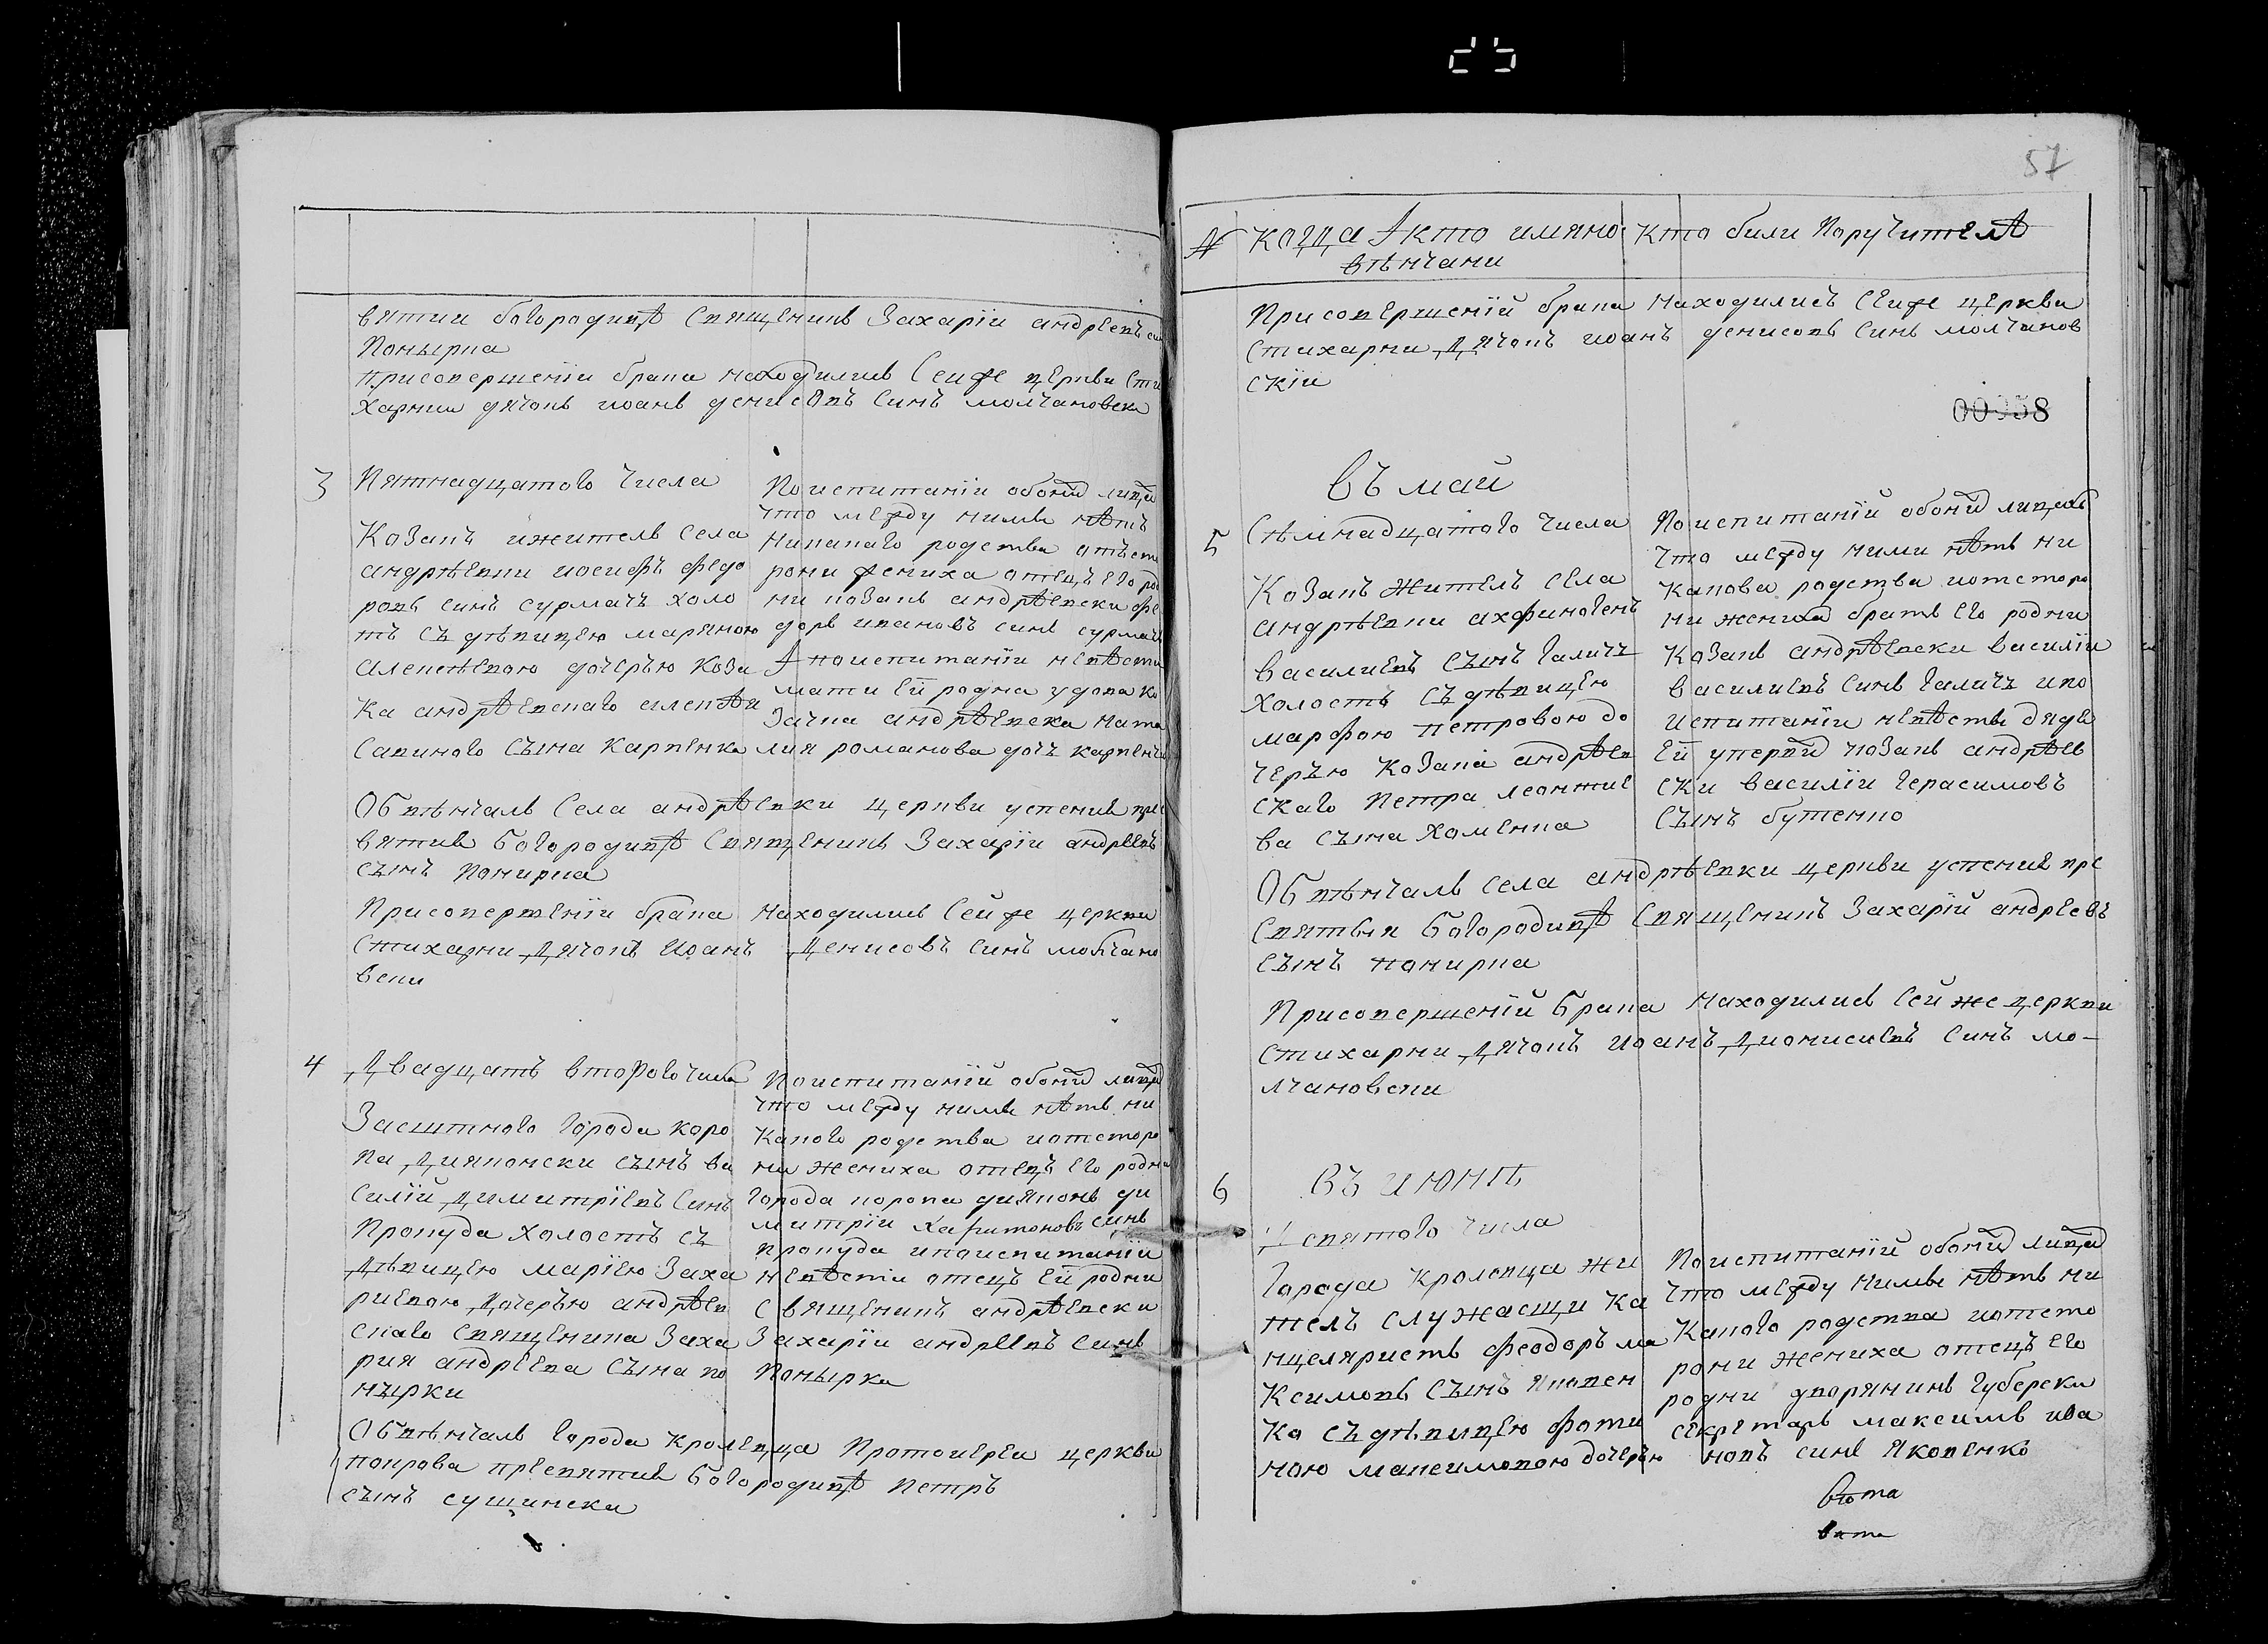 вятии богородицѣ Священикъ Захарїи андреевъ
Понырка
При совершенїи брака находились Сеи же церкви сти
харнии дячокъ иоанъ денисовъ Синъ молчановски
3
Пятнадцатого Числа
Козакъ ижитель Села
андрѣевки иосифъ федо
ровъ синъ сурмачъ холо
тъ съ дѣвицею маряною
алексѣевою дочерью коза
ка андрѣевскаго алексѣи
Савиного Сына Карпенка
По испитанїи обоихъ лицъ
что между ними нѣтъ
Никакаго родства отъ сто
рони жениха отецъ его род
ни козакъ андрѣевски фе
доръ ивановъ синъ сурмачъ
А по испитанїи невѣсти
мати Ей родна удова ко
Зачка андрѣевска ната
лия романова дочъ карпенк
Обвѣнчалъ Села андрѣевки церкви успения прес
вятия Богородицѣ Священикъ Захарїи андреевъ
сынъ Понирка
При совершенїи брака находились Сей же церкви
Стихарни Дячокъ Иоанъ Денисовъ Синъ молчано
вски
4
Двадцатъ второго числа
Заештного Города Коро
па Диячонски сынъ ва
силїй Димитрїевъ Синъ
Пропуда Холостъ съ
Дѣвицею марїею Заха
риевою Дочерью андрѣев
скаго Священика Заха
рия андреева Сына по
нырки
По испитанїй обоихъ лицъ
что между ними нѣтъ ни
Какого родства и отсторо
ни жениха отецъ его родни
Города коропа дияконъ ди
митрїи Харитоновъ синъ
пропуда и по испитанїи
невѣстїи отецъ Ей родни
Священикъ андрѣевски
Захарїи андреевъ синъ
Понырка
Обвѣнчалъ Города Кролевца Протоиереи церкви
покрова пресвятия Богородицѣ Петръ
сынъ сущински
57
№ Когда А кто имяно вѣнчани
Кто били Поручителѣ
При совершенїй брака находились Сеи же церкви
стихарни Дячокъ иоанъ денисовъ Синъ молчанов
скїи
00958
Въ май
5
Сѣмнадцатого Числа
Козакъ Житель Села
андрѣевки ахфиногенъ
василиевъ Сынъ Галичъ
холостъ съ дѣвицею
марфою петровою до
черъю Козака андрѣев
скаго Петра леонтие
ва сына Хоменка
По испитанїй обоихъ лицахъ
что между ними нѣтъ ни
Какова родства и отсторо
ни жениха братъ его родни
Козакъ андрѣевски василїи
василиевъ Синъ Галичъ и по
испитанїи невѣсти дядя
Ей козакъ андрѣев
ски василїи Герасимовъ
сынъ бутенко
Обвѣнчалъ села андрѣевки церкви успения пре
святыя Богородицѣ Священикъ Захарїй андреевъ
сынъ понирка
При совершенїй брака находились Сей же церкви
стихарни Дячокъ иоанъ Дионисиевъ Синъ мо-
лчановски
6
Въ июнѣ
девятого числа
Города Кролевца жи
тель служащи Ка
нцеляристъ Феодоръ ма
ксимовъ Сынъ Яковен
ко съ дѣвицею фоти
ною максимовою дочерью
По испитанїй обоихъ лицъ
что между ними нѣтъ ни
какого родства и отсто
рони жениха отецъ его
родни дворянинъ Губерски
секретарь максимъ ива
новъ синъ Яковенко